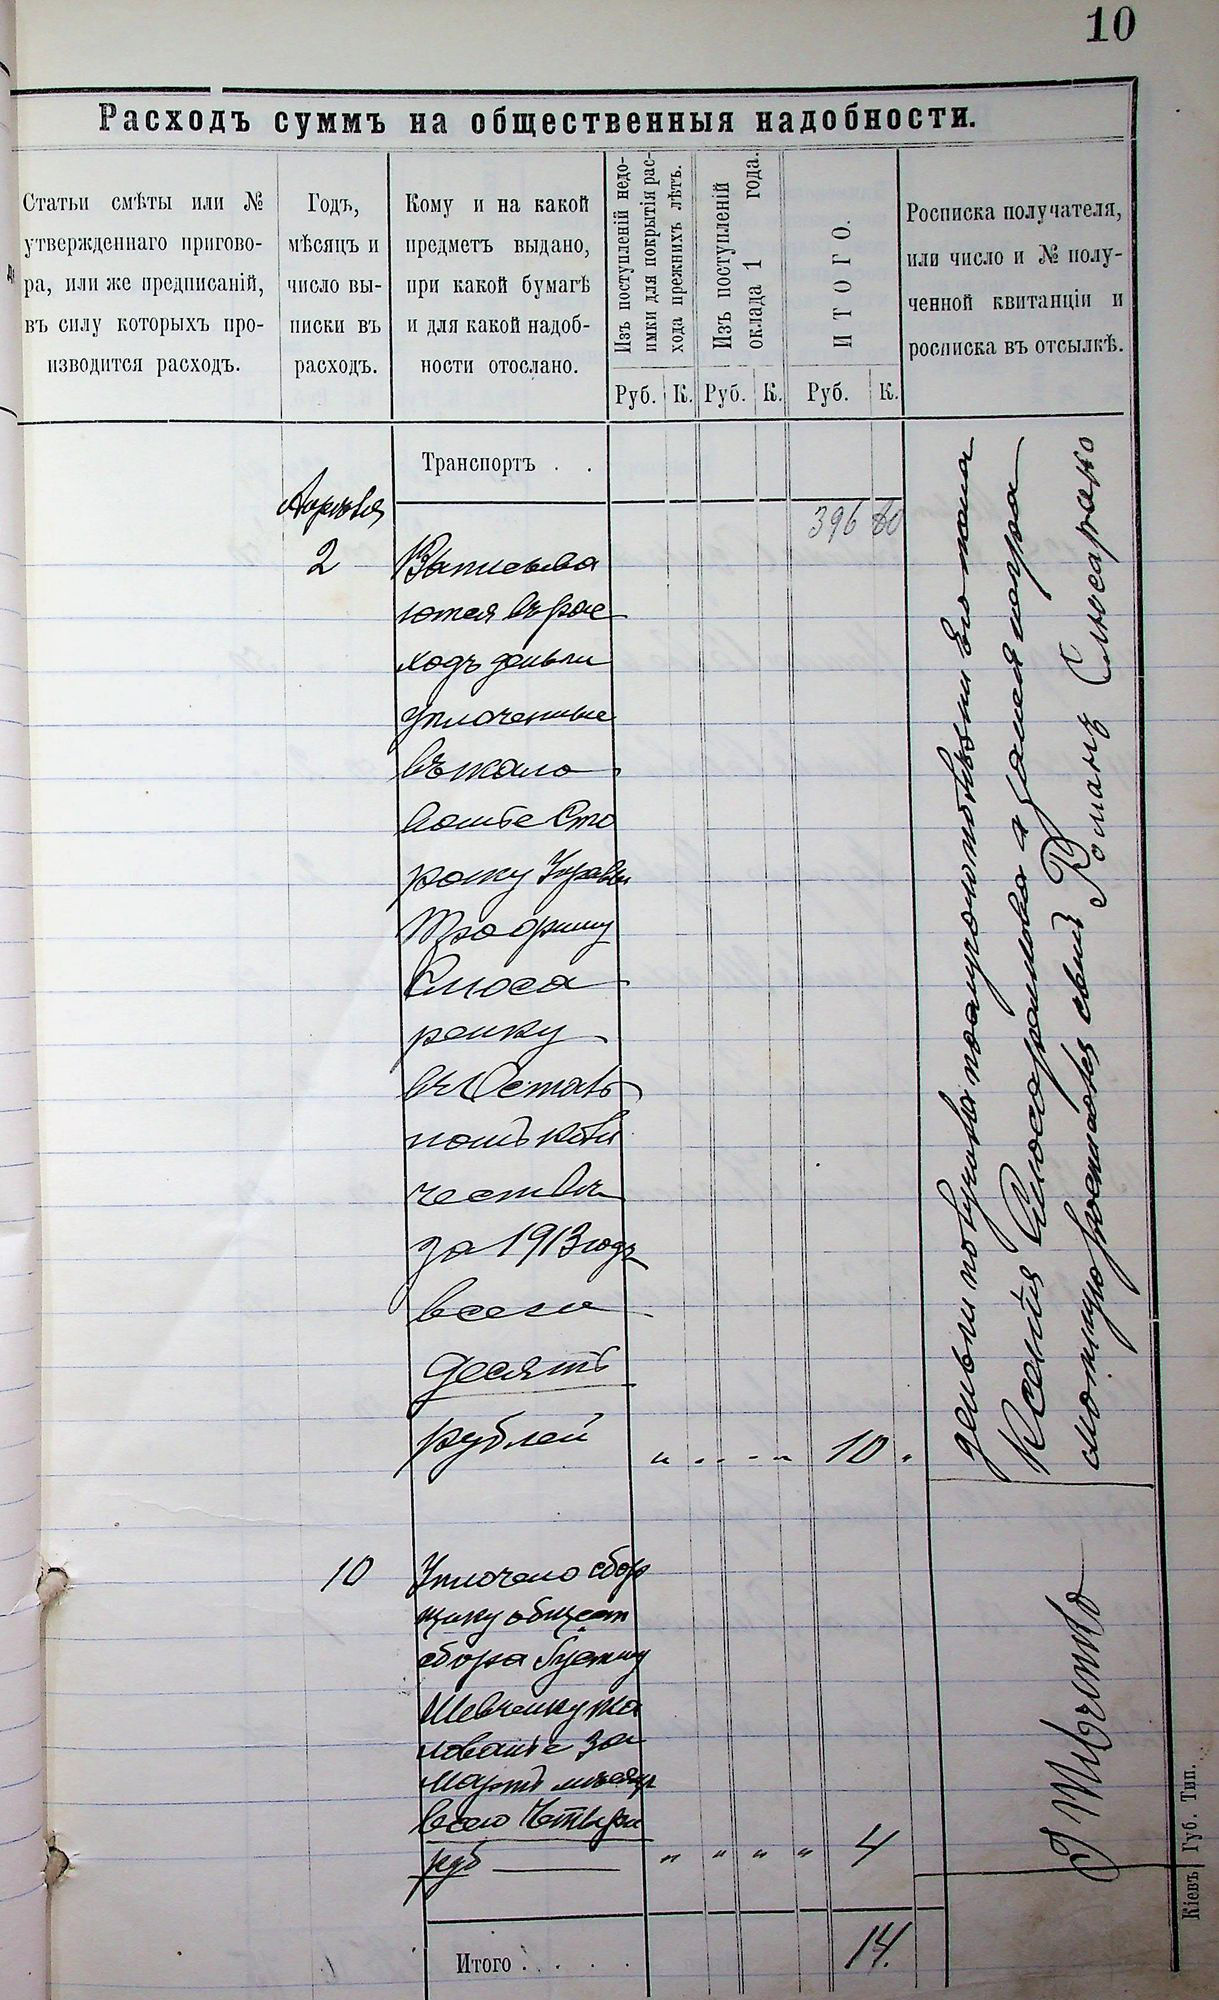 10
Расходъ суммъ на общественныя надобности.
Статьи смѣты или №
утвержденнаго пригово-
ра, или же предписаній,
въ силу которыхъ про-
изводится расходъ.
Годъ,
мѣсяцъ и
число вы-
писки въ
расходъ.
Кому и на какой
предметъ выдано,
при какой бумагѣ
и для какой надоб-
ности отослано.
Изъ поступленій недо-
имки для покрытія рас-
хода прежнихъ лѣтъ.
Изъ поступленій
оклада 1 года.
ИТОГО.
Росписка получателя,
или число и № полу-
ченной квитанціи и
росписка въ отсылкѣ.
Руб. К. Руб. К. Руб. К.
Транспортъ . .
396 80
Апрѣля
2
Записыва
ются въ рас
ходъ деньги
уплоченные
въ жало
ванье Сто
рожу Управы
Трофиму
Слюса
ренку
въ Остать
номъ коли
чествѣ
за 1913 годъ
всего
десять
рублей " - - - " 10 "
деньги получила
Ксенія Слюсаренкова а за нея неграмотную росписался сынъ Романъ Слюсаренко
10
Уплочено сбор
щику общест
сбора Густину
Шевченку жа
лованье за
Мартъ мѣсяцъ
всего Четыри
руб " " " " 4
Г Шевченко
Итого . . . . . 14.
Кіевъ Губ. Тип.